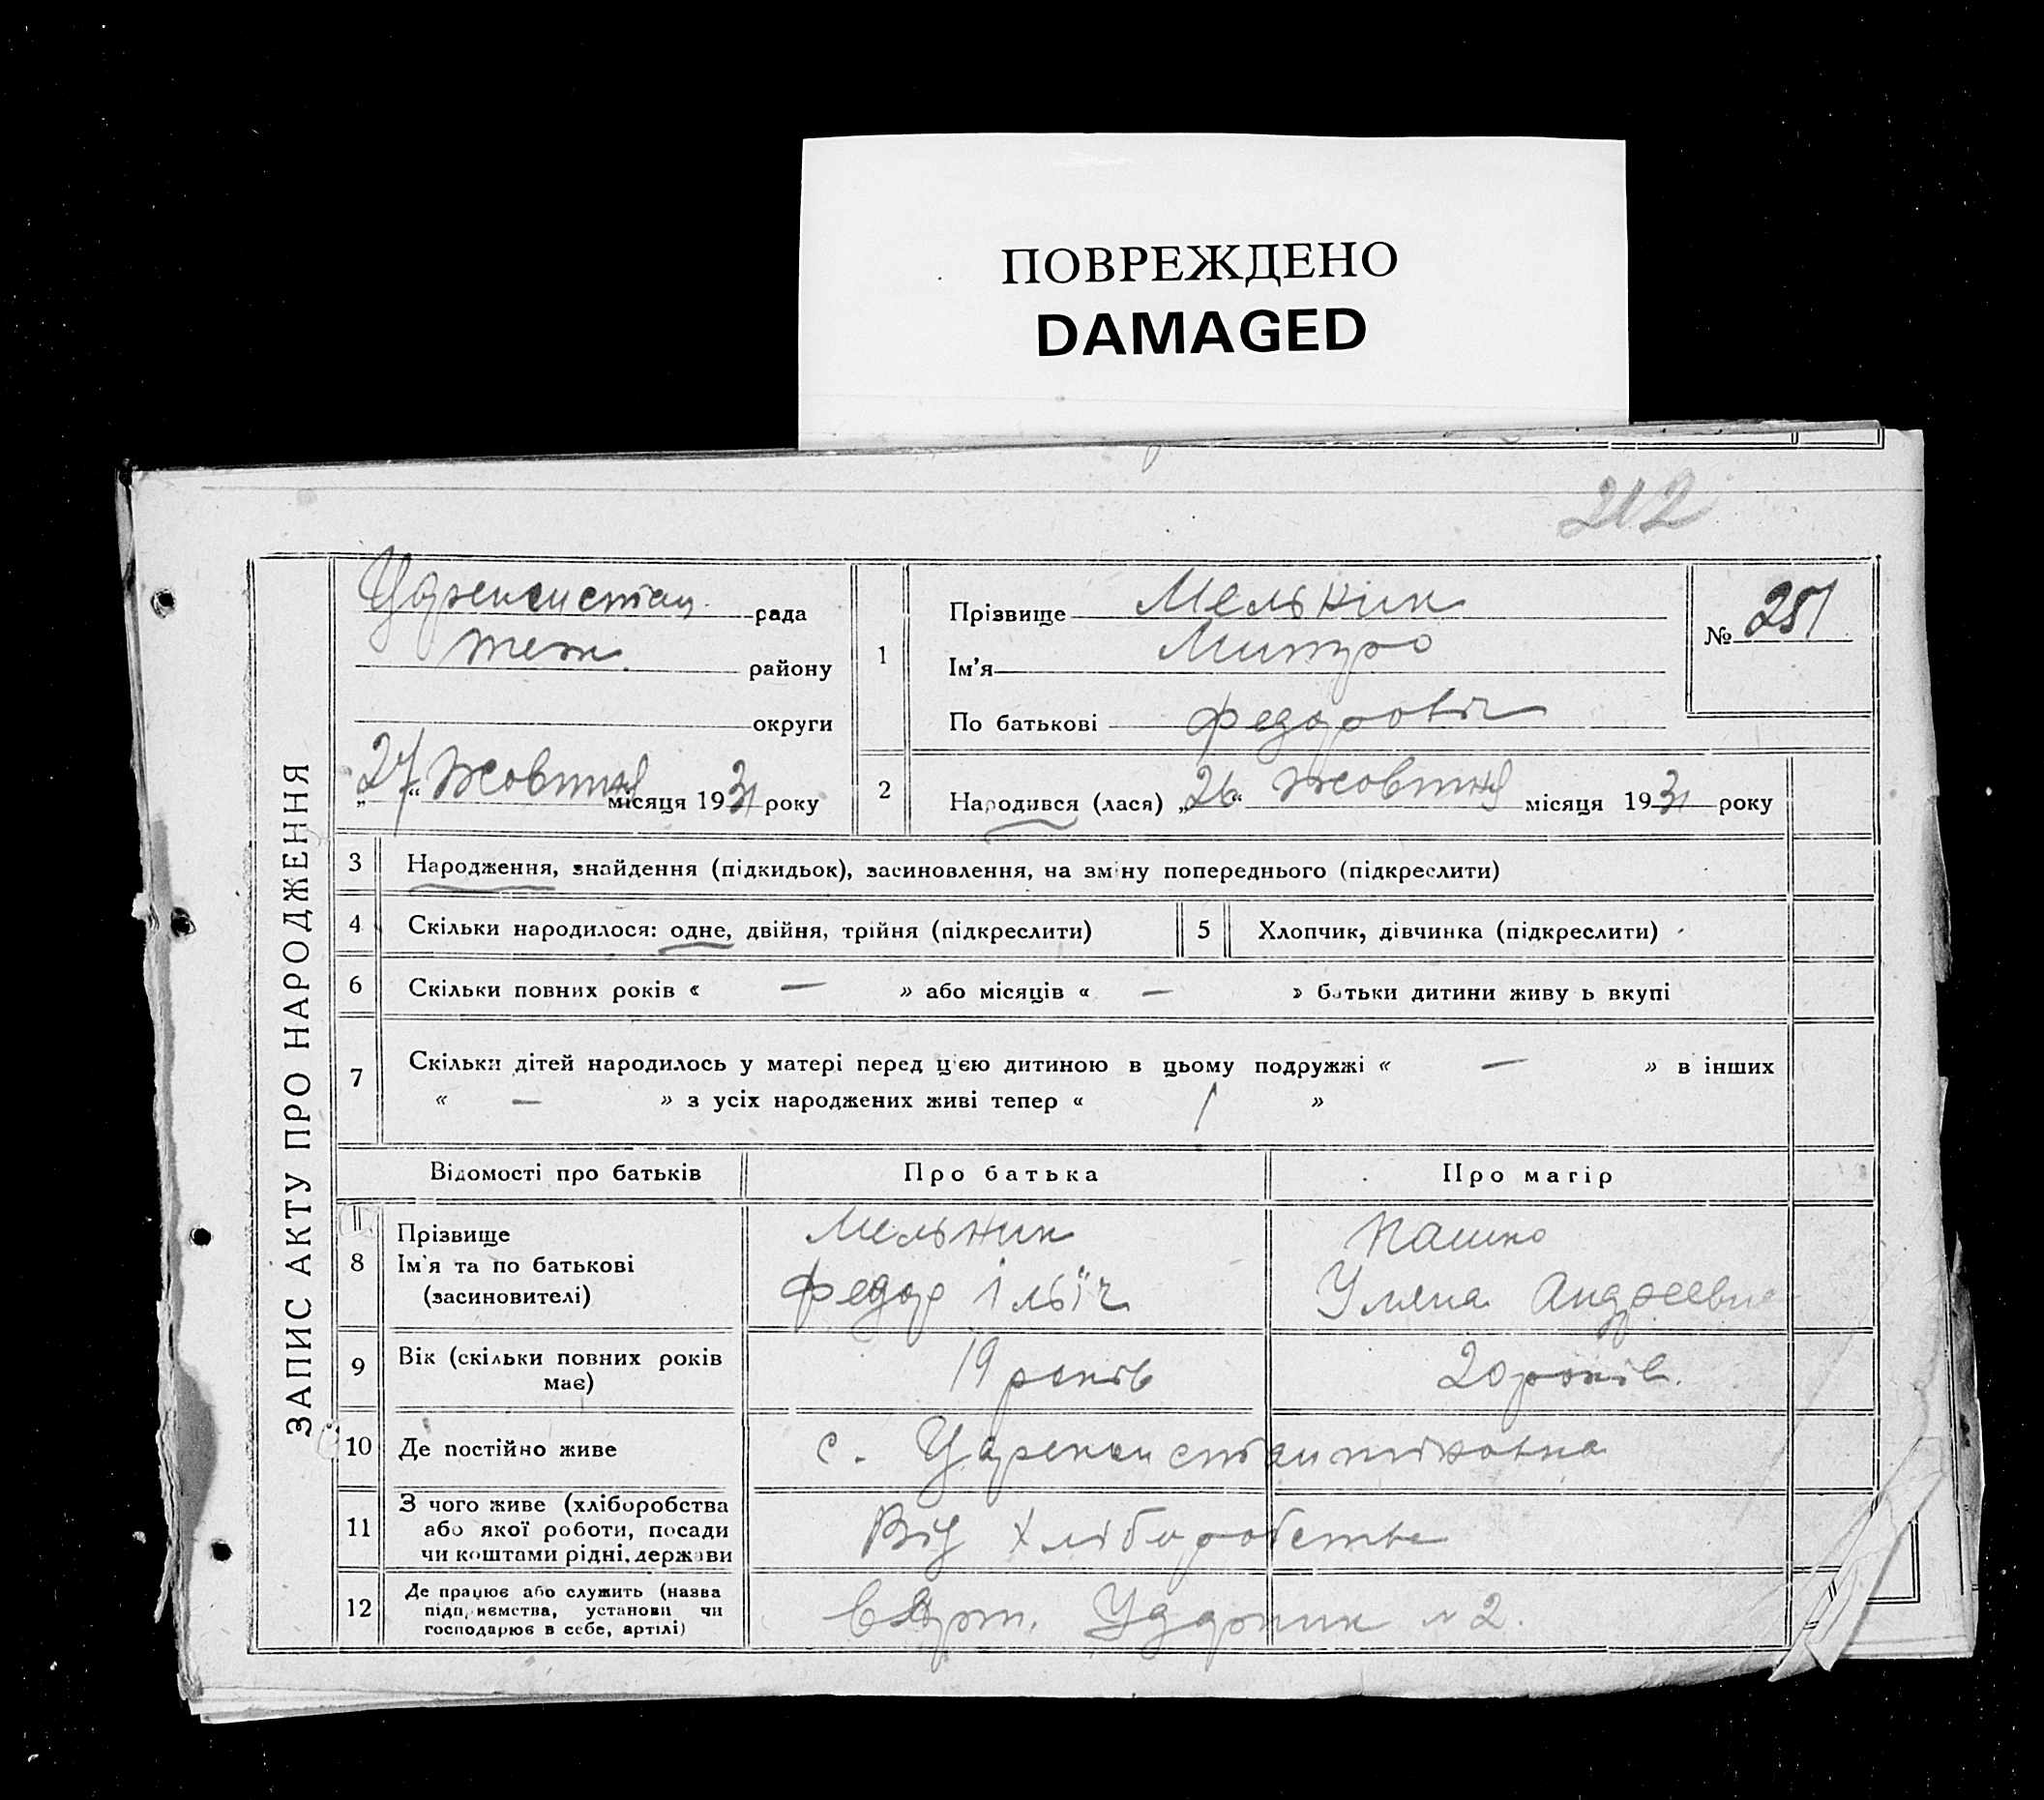 ПОВРЕЖДЕНО
DAMAGED
212
ЗАПИС АКТУ ПРО НАРОДЖЕННЯ
рада
теж району
округи
„27“ Жовтня місяця 1931 року
1
Прізвище Мельник
Ім'я Митро
По батькові Федоровіч
№ 251
2
Народився (лася) „26“ Жовтня місяця 1931 року
3 Народження, знайдення (підкидьок), засиновлення, на зміну попереднього (підкреслити)
4 Скільки народилося: одне, двійня, трійня (підкреслити)
5 Хлопчик, дівчинка (підкреслити)
6 Скільки повних років « — » або місяців « — » батьки дитини живу ь вкупі
7 Скільки дітей народилось у матері перед цією дитиною в цьому подружжі « — » в інших
« — » з усіх народжених живі тепер « 1 »
Відомості про батьків Про батька Про матір
8 Прізвище Мельник Пашко
Ім'я та по батькові Федор Ільїч Уляна Андреевна
(засиновителі)
9 Вік (скільки повних років 19 років 20 років.
має)
10 Де постійно живе с.
11 З чого живе (хліборобства
або якої роботи, посади Від хліборобства
чи коштами рідні, держави
12 Де працює або служить (назва
підприємства, установи чи Ударник № 2.
господарює в себе, артілі)